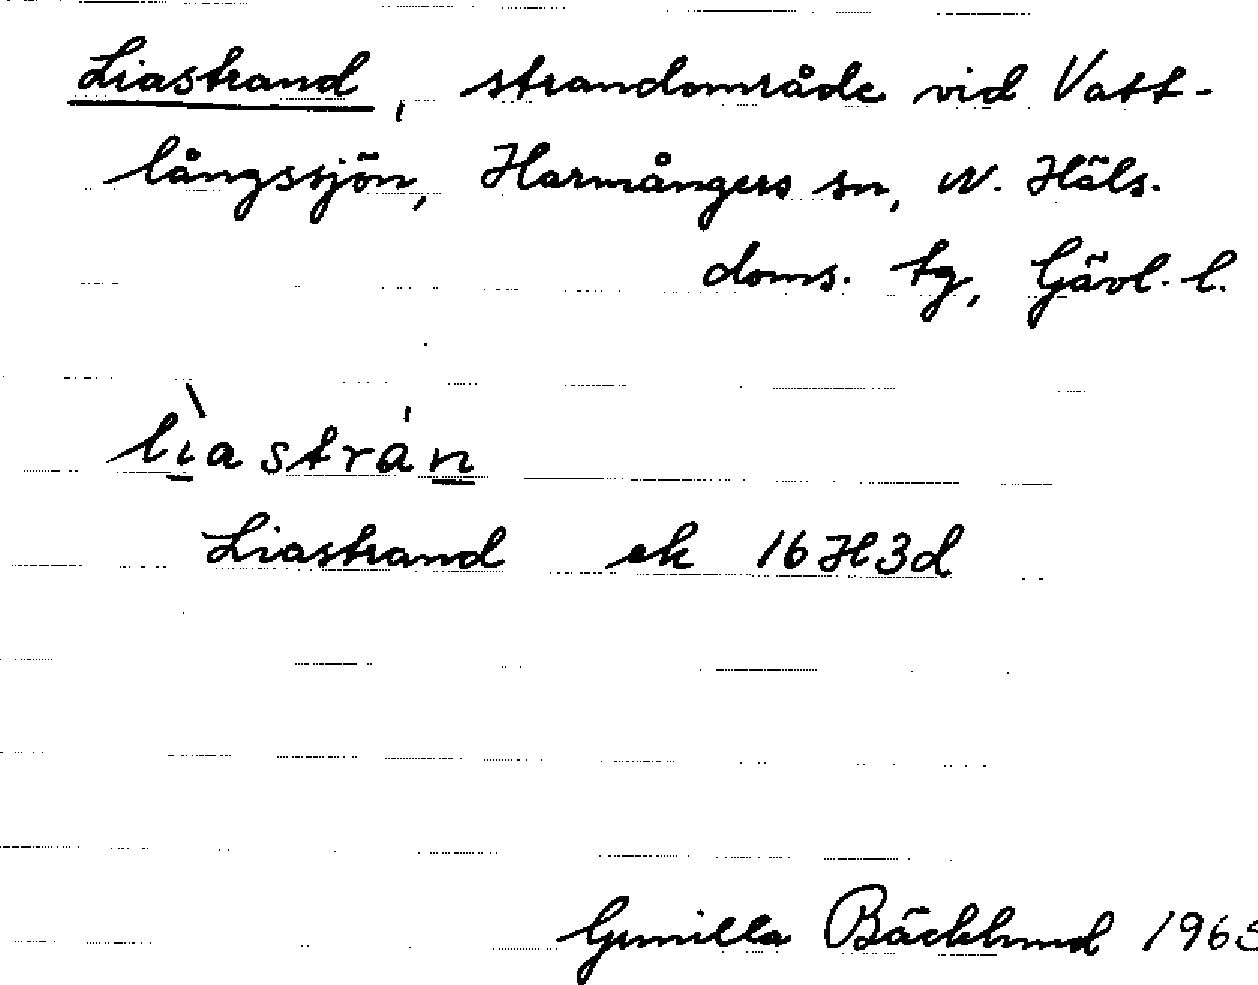 Liastrand, strandområde vid Vatt-
långssjön, Harmångers sn, N. Häls.
doms. tg, Gävl. l.
lìastrán
Liastrand ek 16H3d
Gunilla Bäcklund